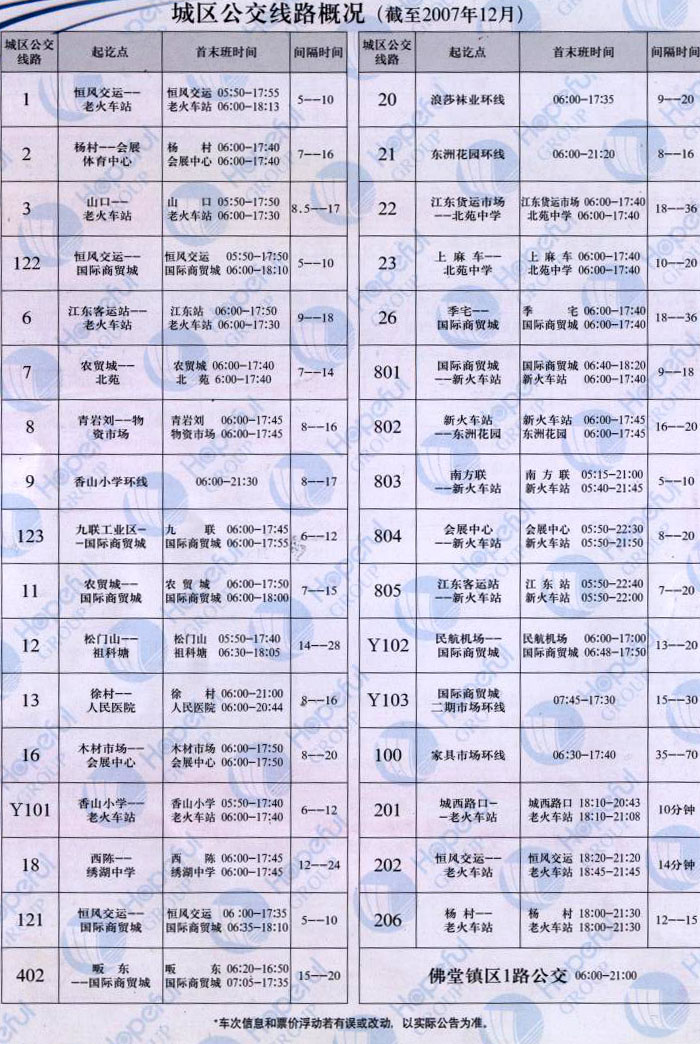 城区公交线路概况（截至2007年12月）
城区公交线路 起讫点 首末班时间 间隔时间
1 恒风交运——老火车站 恒风交运 05:50-17:55 老火车站 06:00-18:13 5——10
2 杨村——会展体育中心 杨村 06:00-17:40 会展中心 06:00-17:40 7——16
3 山口——老火车站 山口 05:50-17:50 老火车站 06:00-17:30 8.5——17
122 恒风交运——国际商贸城 恒风交运 05:50-17:50 国际商贸城 06:00-18:10 5——10
6 江东客运站——老火车站 江东站 06:00-17:50 老火车站 06:00-17:30 9——18
7 农贸城——北苑 农贸城 06:00-17:40 北苑 6:00-17:40 7——14
8 青岩刘——物资市场 青岩刘 06:00-17:45 物资市场 06:00-17:45 8——16
9 香山小学环线 06:00-21:30 8——17
123 九联工业区——国际商贸城 九联 06:00-17:45 国际商贸城 06:00-17:55 6——12
11 农贸城——国际商贸城 农贸城 06:00-17:50 国际商贸城 06:00-18:00 7——15
12 松门山——祖科塘 松门山 05:50-17:40 祖科塘 06:30-18:05 14——28
13 徐村——人民医院 徐村 06:00-21:00 人民医院 06:00-20:44 8——16
16 木材市场——会展中心 木材市场 06:00-17:50 会展中心 06:00-17:50 8——20
Y101 香山小学——老火车站 香山小学 05:50-17:40 老火车站 06:00-17:40 6——12
18 西陈——绣湖中学 西陈 06:00-17:45 绣湖中学 06:00-17:45 12——24
121 恒风交运——国际商贸城 恒风交运 06:00-17:35 国际商贸城 06:35-18:10 5——10
402 畈东——国际商贸城 畈东 06:20-16:50 国际商贸城 07:05-17:35 15——20
城区公交线路 起讫点 首末班时间 间隔时间
20 浪莎袜业环线 06:00-17:35 9——20
21 东洲花园环线 06:00-21:20 8——16
22 江东货运市场——北苑中学 江东货运市场 06:00-17:40 北苑中学 06:00-17:40 18——36
23 上麻车——北苑中学 上麻车 06:00-17:40 北苑中学 06:00-17:40 10——20
26 季宅——国际商贸城 季宅 06:00-17:40 国际商贸城 06:00-17:40 18——36
801 国际商贸城——新火车站 国际商贸城 06:40-18:20 新火车站 06:00-17:40 9——18
802 新火车站——东洲花园 新火车站 06:00-17:45 东洲花园 06:00-17:45 16——20
803 南方联——新火车站 南方联 05:15-21:00 新火车站 05:40-21:45 5——10
804 会展中心——新火车站 会展中心 05:50-22:30 新火车站 05:50-21:50 8——20
805 江东客运站——新火车站 江东站 05:50-22:40 新火车站 05:50-22:00 7——20
Y102 民航机场——国际商贸城 民航机场 06:00-17:00 国际商贸城 06:48-17:50 13——20
Y103 国际商贸城二期市场环线 07:45-17:30 15——30
100 家具市场环线 06:30-17:40 35——70
201 城西路口——老火车站 城西路口 18:10-20:43 老火车站 18:10-21:08 10分钟
202 恒风交运——老火车站 恒风交运 18:20-21:20 老火车站 18:45-21:45 14分钟
206 杨村——老火车站 杨村 18:00-21:30 老火车站 18:00-21:30 12——15
佛堂镇区1路公交 06:00-21:00
*车次信息和票价浮动若有误或改动，以实际公告为准。
Hopeful GROUP